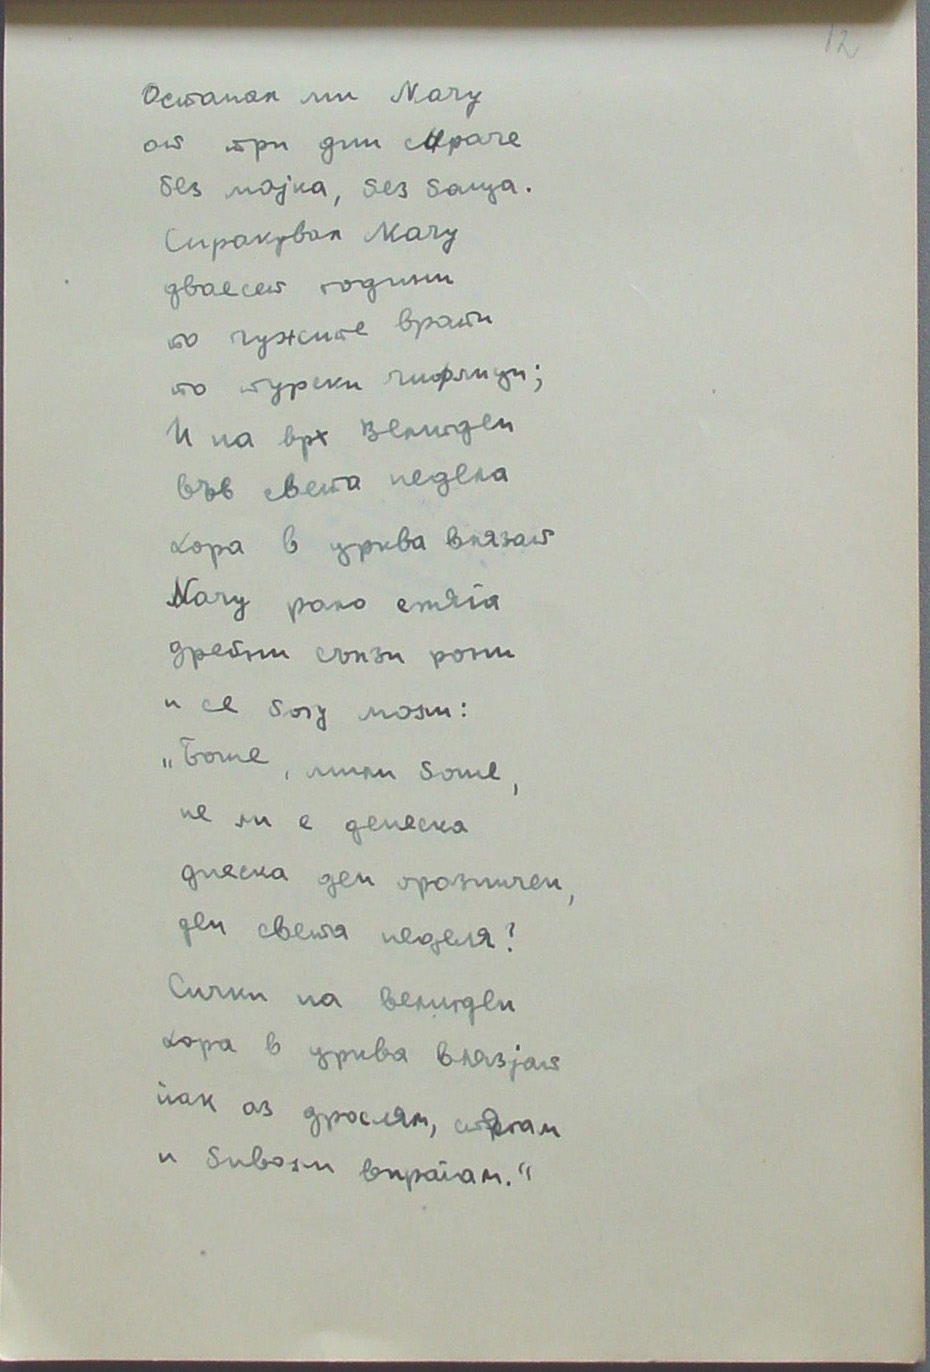 12
Останал ми Начу
от три дни сираче
без мојка, без баща.
Сиракувал Начу
двaесет години
по чужите врати
по турски чифлици;
И на врх Велитден
във света недела
хора в црква влязат
Начу рало стяга
дребни сълзи рони
и се богу моли:
„Боже, мили боже,
не ли е денеска
дняска ден празничен,
ден светя неделя?
Сички на велитден
хора в црквя влязјат
пак аз стягам
и биволи впрягам."